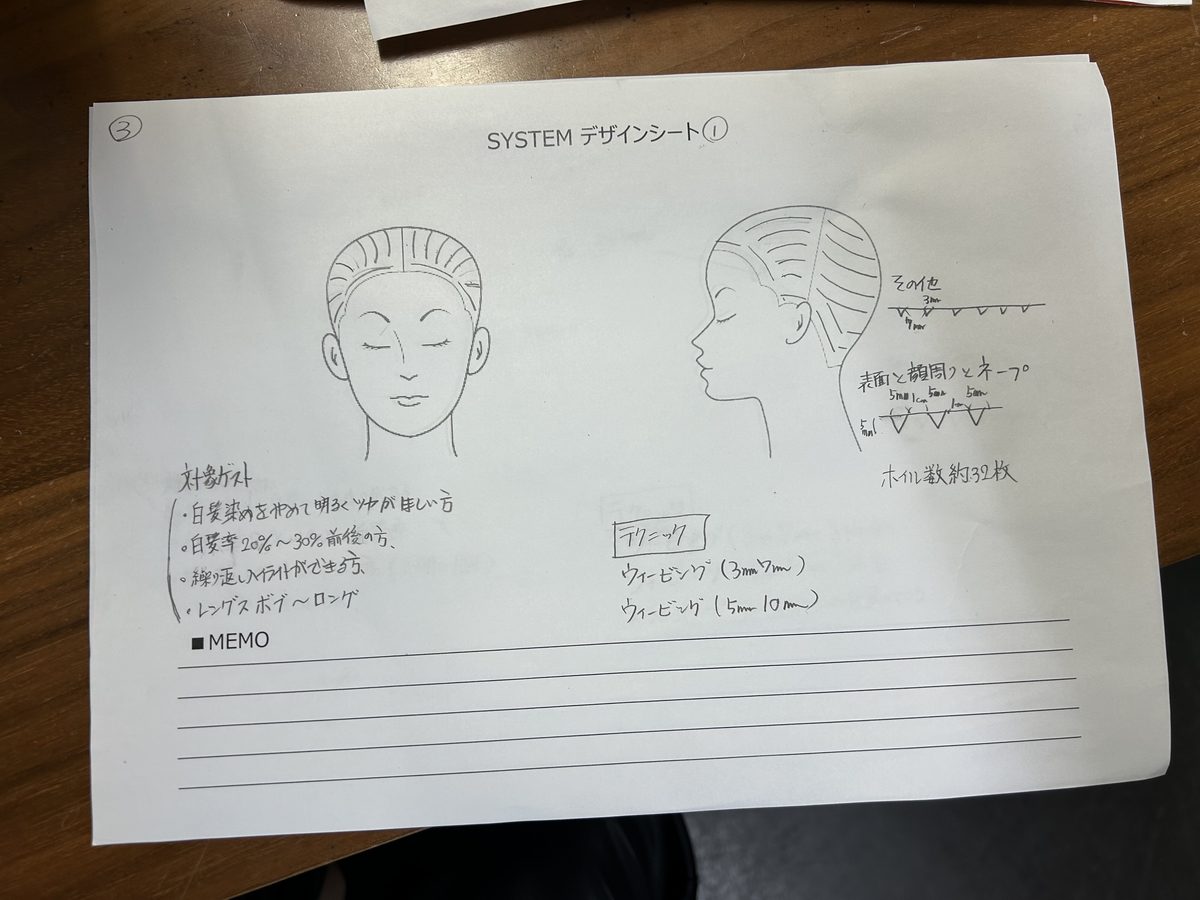 ③
SYSTEM デザインシート①
その他
3mm
7mm
表面と顔周りとネープ
5mm 1cm 5mm 1cm 5mm
5mm
ホイル数約32枚
対象ゲスト
・白髪染めをやめて明るくツヤがほしい方
・白髪率20%～30%前後の方、
・繰り返しハイライトができる方、
・レングス ボブ～ロング
テクニック
ウィービング (3mm7mm)
ウィービング (5mm10mm)
■MEMO